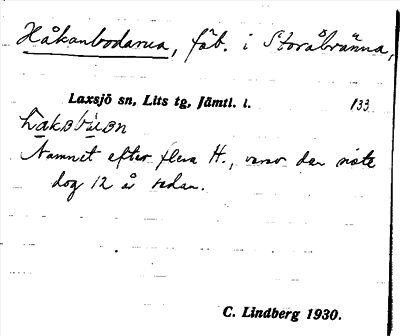 Håkanbodarna, fäb. i Storåbränna,
Laxsjö sn, Lits tg, Jämtl. l. 133
Namnet efter flera H., varav den siste
dog 12 år sedan.
C. Lindberg 1930.